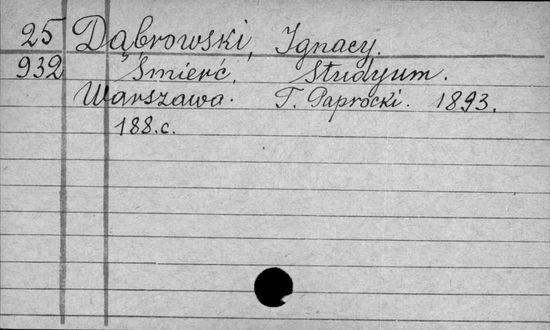 25 Dąbrowski, Ignacy.
932 Śmierć, Studyum.
Warszawa. T. Paprocki. 1893.
188.c.